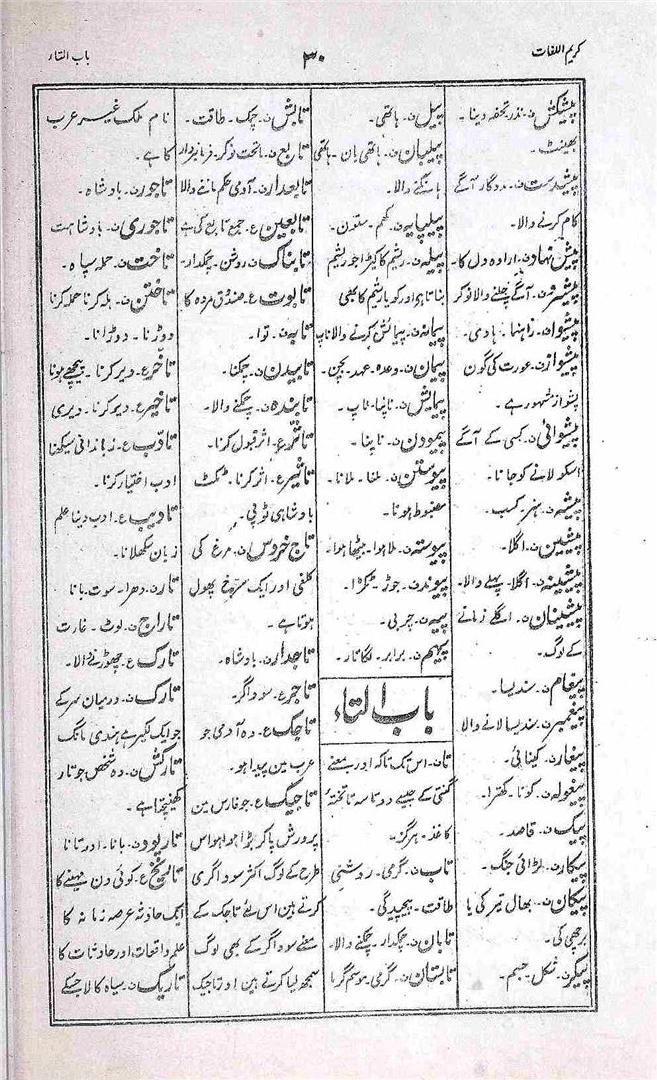 کریم اللغات
۳۰
باب التاء
پیشکش ن۔ نذر تحفہ دینا۔
بھینٹ۔
پیشدست ن۔ مددگار آگے
کام کرنے والا۔
پیش نہاد ن۔ ارادہ دل کا۔
پیشرو ن۔ آگے چلنے والا نوکر
پیشوا ن۔ راہنما۔ ہادی۔
پیشواز ن۔ عورت کی گون
پشواز مشہور ہے۔
پیشوائی ن۔ کسی کے آگے
اسکو لانے کو جانا۔
پیشہ ن۔ ہنر کسب۔
پیشین ن۔ اگلا۔
پیشینہ ن۔ اگلا۔ پہلے والا۔
پیشینان ن۔ اگلے زمانے
کے لوگ۔
پیغام ن۔ سندیسا۔
پیغمبر ن۔ سندیسا لانے والا
پیغار ن۔
پیغولہ ن۔ کونا۔
پیک ن۔ قاصد۔
پیکار ن۔ لڑائی جنگ۔
پیکان ن۔ بھال تیر کی یا
برچھی کی۔
پیکر ن۔ شکل۔ جسم۔
پیل ن۔ ہاتھی۔
پیلبان ن۔ ہاتھی بان۔ ہاتھی
ہانکنے والا۔
پیلپایہ ن۔ کھم۔ ستون۔
پیلہ ن۔ ریشم کا کیڑا جو ریشم
بناتا ہے اور کویا ریشم کا بھی
پیمانہ ن۔ پیمائش کرنے والا ناپ
پیمان ن۔ وعدہ۔ عہد۔ بچن۔
پیمایش ن۔ ناپنا۔ ناپ۔
پیمودن ن۔ ناپنا۔
پیوستن ن۔ ملنا۔ ملانا۔
مضبوط ہونا۔
پیوستہ ن۔ ملا ہوا۔ بیٹھا ہوا۔
پیوند ن۔ جوڑ۔ ٹکڑا۔
پیہ ن۔ چربی۔
پیہم ن۔ برابر۔ لگاتار۔
باب التاء
تا ن۔ اس تک تاکہ اور بمعنے
گنتی کے جیسے دو تا سہ تا تختہ
کاغذ۔ ہرگز۔
تاب ن۔ گرمی۔ روشنی
طاقت۔ پیچیدگی۔
تابان ن۔ چمکدار۔ چمکنے والا۔
تابستان ن۔ گرمی۔ موسم گرما
تابش ن۔ چمک۔ طاقت۔
تابع ن۔ ماتحت نوکر۔ فرمانبردار
تابعدار ن۔ آدمی حکم ماننے والا
تابعین ع۔ جمع تابع کی ہے
تابناک ن۔ روشن۔ چمکدار۔
تابوت ع۔ صندوق مردہ کا
تابہ ن۔ توا۔
تابیدن ن۔ چمکنا۔
تابندہ ن۔ چمکنے والا۔
تاثر ع۔ اثر قبول کرنا۔
تاثیر ع۔ اثر کرنا۔ ٹکٹ
بادشاہی ٹوپی۔
تاج خروس ن۔ مرغ کی
کلغی اور ایک سرخ پھول
ہوتا ہے۔
تاجدار ن۔ بادشاہ۔
تاجر ع۔ سوداگر۔
تاجک ع۔ وہ آدمی جو
عرب میں پیدا ہو۔
تاجیک ع۔ جو فارس مین
پرورش پاکر بڑا ہوا ہو اس
طرح کے لوگ اکثر سوداگری
کرتے ہین اس لئے تاجک کے
معنے سوداگر کے بھی لوگ
سمجھ لیا کرتے ہین اور تاجیک
نام ملک غیر عرب
کا ہے۔
تاجور ن۔ بادشاہ۔
تاجوری ن۔ بادشاہت
تاخت ن۔ حملہ سپاہ۔
تاختن ن۔ ہلہ کرنا حملہ کرنا
دوڑنا۔ دوڑانا۔
تاخر ع۔ دیر کرنا۔ پیچھے ہونا
تاخیر ع۔ دیر کرنا۔ دیری
تادب ع۔ زباندانی سیکھنا
ادب اختیار کرنا۔
تادیب ع۔ ادب دینا علم
زبان سکھلانا۔
تار ن۔ دھرا۔ سوت۔ بانا
تاراج ن۔ لوٹ۔ غارت
تارک ع۔ چھوڑنے والا۔
تارک ن۔ درمیان سر کے
جو ایک لکیر ہے ہندی مانگ
تارکش ن۔ وہ شخص جو تار
کھینچتا ہے۔
تارپود ن۔ بانا۔ اور تانا
تاریخ ع۔ کوئی دن مہینے کا
ایک حادثہ عرصہ زمانہ کا
علم واقعات اور حادثات کا
تاریک ن۔ سیاہ کالا جسکے